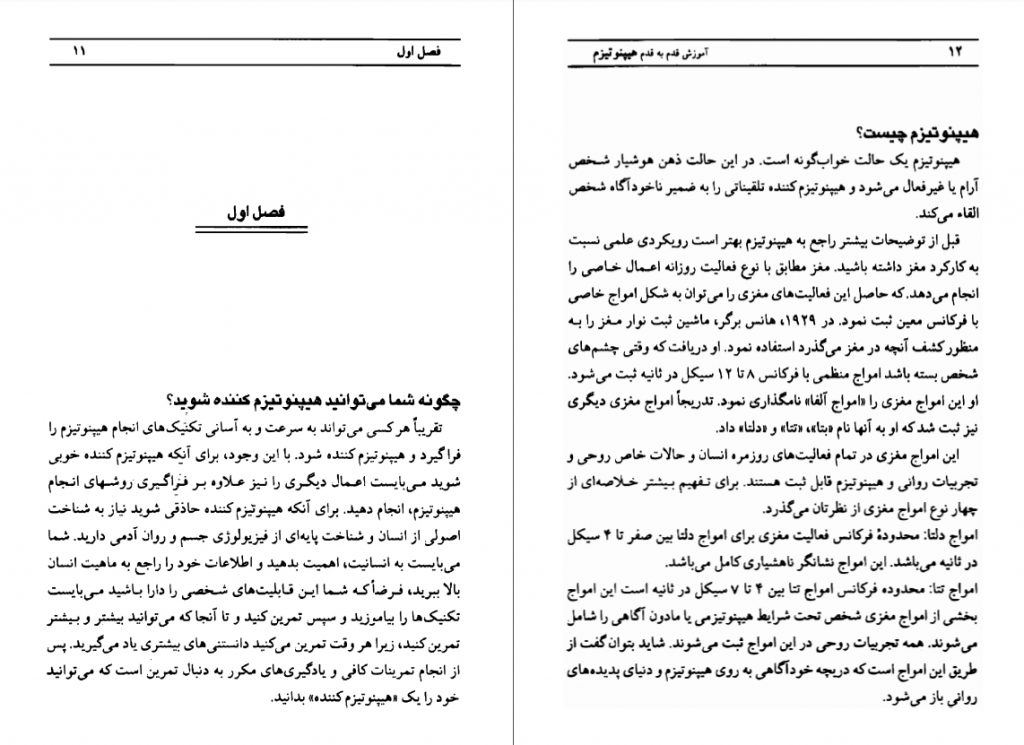 فصل اول ۱۱
فصل اول
چگونه شما می‌توانید هیپنوتیزم کننده شوید؟
تقریباً هر کسی می‌تواند به سرعت و به آسانی تکنیک‌های انجام هیپنوتیزم را
فراگیرد و هیپنوتیزم کننده شود. با این وجود، برای آنکه هیپنوتیزم کننده خوبی
شوید می‌بایست اعمال دیگری را نیز علاوه بر فراگیری روشهای انجام
هیپنوتیزم، انجام دهید. برای آنکه هیپنوتیزم کننده حاذقی شوید نیاز به شناخت
اصولی از انسان و شناخت پایه‌ای از فیزیولوژی جسم و روان آدمی دارید. شما
می‌بایست به انسانیت، اهمیت بدهید و اطلاعات خود را راجع به ماهیت انسان
بالا ببرید، فرضاً که شما این قابلیت‌های شخصی را دارا باشید می‌بایست
تکنیک‌ها را بیاموزید و سپس تمرین کنید و تا آنجا که می‌توانید بیشتر و بیشتر
تمرین کنید، زیرا هر وقت تمرین می‌کنید دانستنی‌های بیشتری یاد می‌گیرید. پس
از انجام تمرینات کافی و یادگیری‌های مکرر به دنبال تمرین است که می‌توانید
خود را یک «هیپنوتیزم‌کننده» بدانید.
۱۲ آموزش قدم به قدم هیپنوتیزم
هیپنوتیزم چیست؟
هیپنوتیزم یک حالت خواب‌گونه است. در این حالت ذهن هوشیار شخص
آرام یا غیرفعال می‌شود و هیپنوتیزم‌کننده تلقیناتی را به ضمیر ناخودآگاه شخص
القاء می‌کند.
قبل از توضیحات بیشتر راجع به هیپنوتیزم بهتر است رویکردی علمی نسبت
به کارکرد مغز داشته باشید. مغز مطابق با نوع فعالیت روزانه اعمال خاصی را
انجام می‌دهد. که حاصل این فعالیت‌های مغزی را می‌توان به شکل امواج خاصی
با فرکانس معین ثبت نمود. در ۱۹۲۹، هانس برگر، ماشین ثبت نوار مغز را به
منظور کشف آنچه در مغز می‌گذرد استفاده نمود. او دریافت که وقتی چشم‌های
شخص بسته باشد امواج منظمی با فرکانس ۸ تا ۱۲ سیکل در ثانیه ثبت می‌شود.
او این امواج مغزی را «امواج آلفا» نامگذاری نمود. تدریجاً امواج مغزی دیگری
نیز ثبت شد که او به آنها نام «بتا»، «تتا» و «دلتا» داد.
این امواج مغزی در تمام فعالیت‌های روزمره انسان و حالات خاص روحی و
تجربیات روانی و هیپنوتیزم قابل ثبت هستند. برای تفهیم بیشتر خلاصه‌ای از
چهار نوع امواج مغزی از نظرتان می‌گذرد.
امواج دلتا: محدودهٔ فرکانس فعالیت مغزی برای امواج دلتا بین صفر تا ۴ سیکل
در ثانیه می‌باشد. این امواج نشانگر ناهشیاری کامل می‌باشد.
امواج تتا: محدوده فرکانس امواج تتا بین ۴ تا ۷ سیکل در ثانیه است این امواج
بخشی از امواج مغزی شخص تحت شرایط هیپنوتیزمی یا مادون آگاهی را شامل
می‌شوند. همه تجربیات روحی در این امواج ثبت می‌شوند. شاید بتوان گفت از
طریق این امواج است که دریچه خودآگاهی به روی هیپنوتیزم و دنیای پدیده‌های
روانی باز می‌شود.